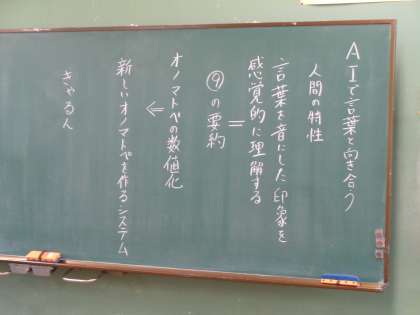 AIで言葉と向き合う
人間の特性
言葉を音にした印象を
感覚的に理解する
=
⑨の要約
オノマトペの数値化
⇓
新しいオノマトペを作るシステム
きゃるん